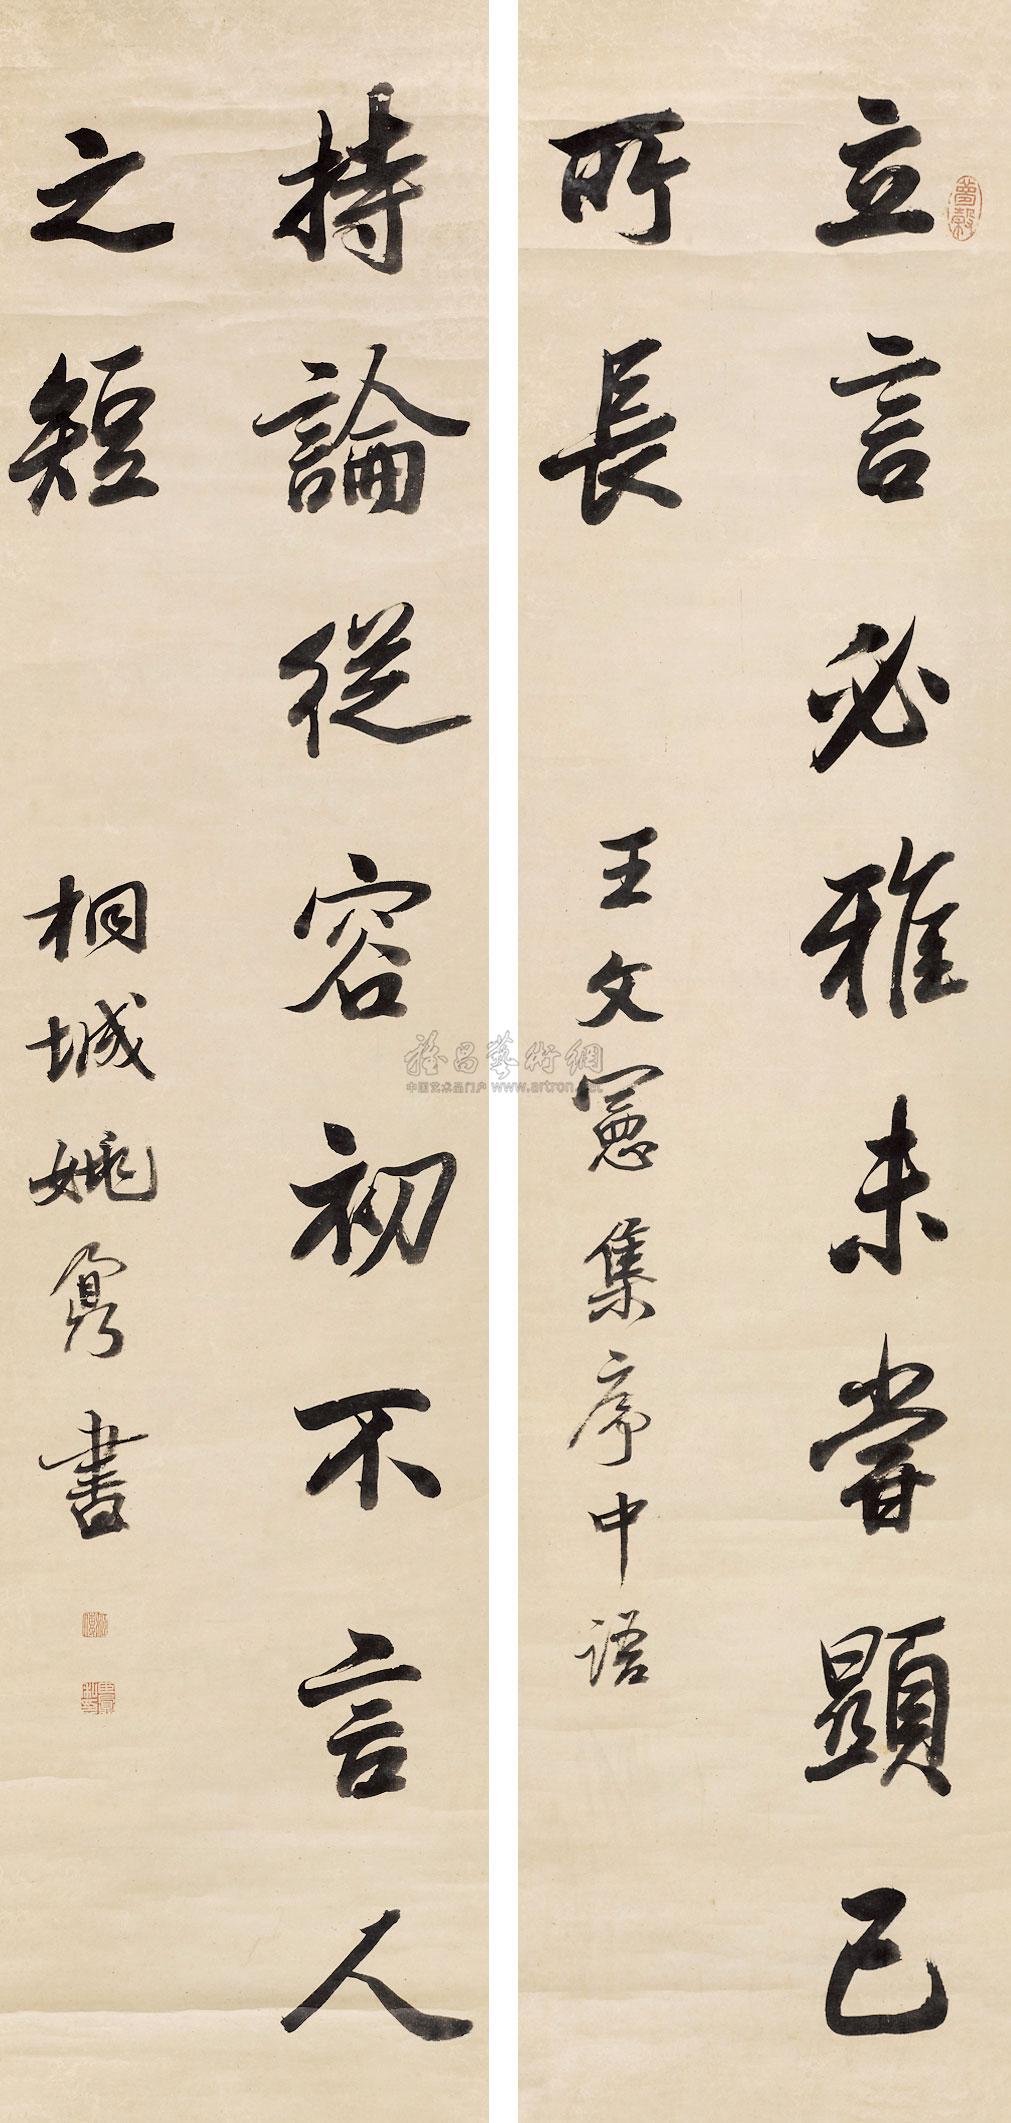 立言必雅未嘗顯己
所長
王文憲集序中語
持論從容初不言人
之短
桐城姚鼐書
雅昌藝術網
中国艺术品门户 www.artron.net